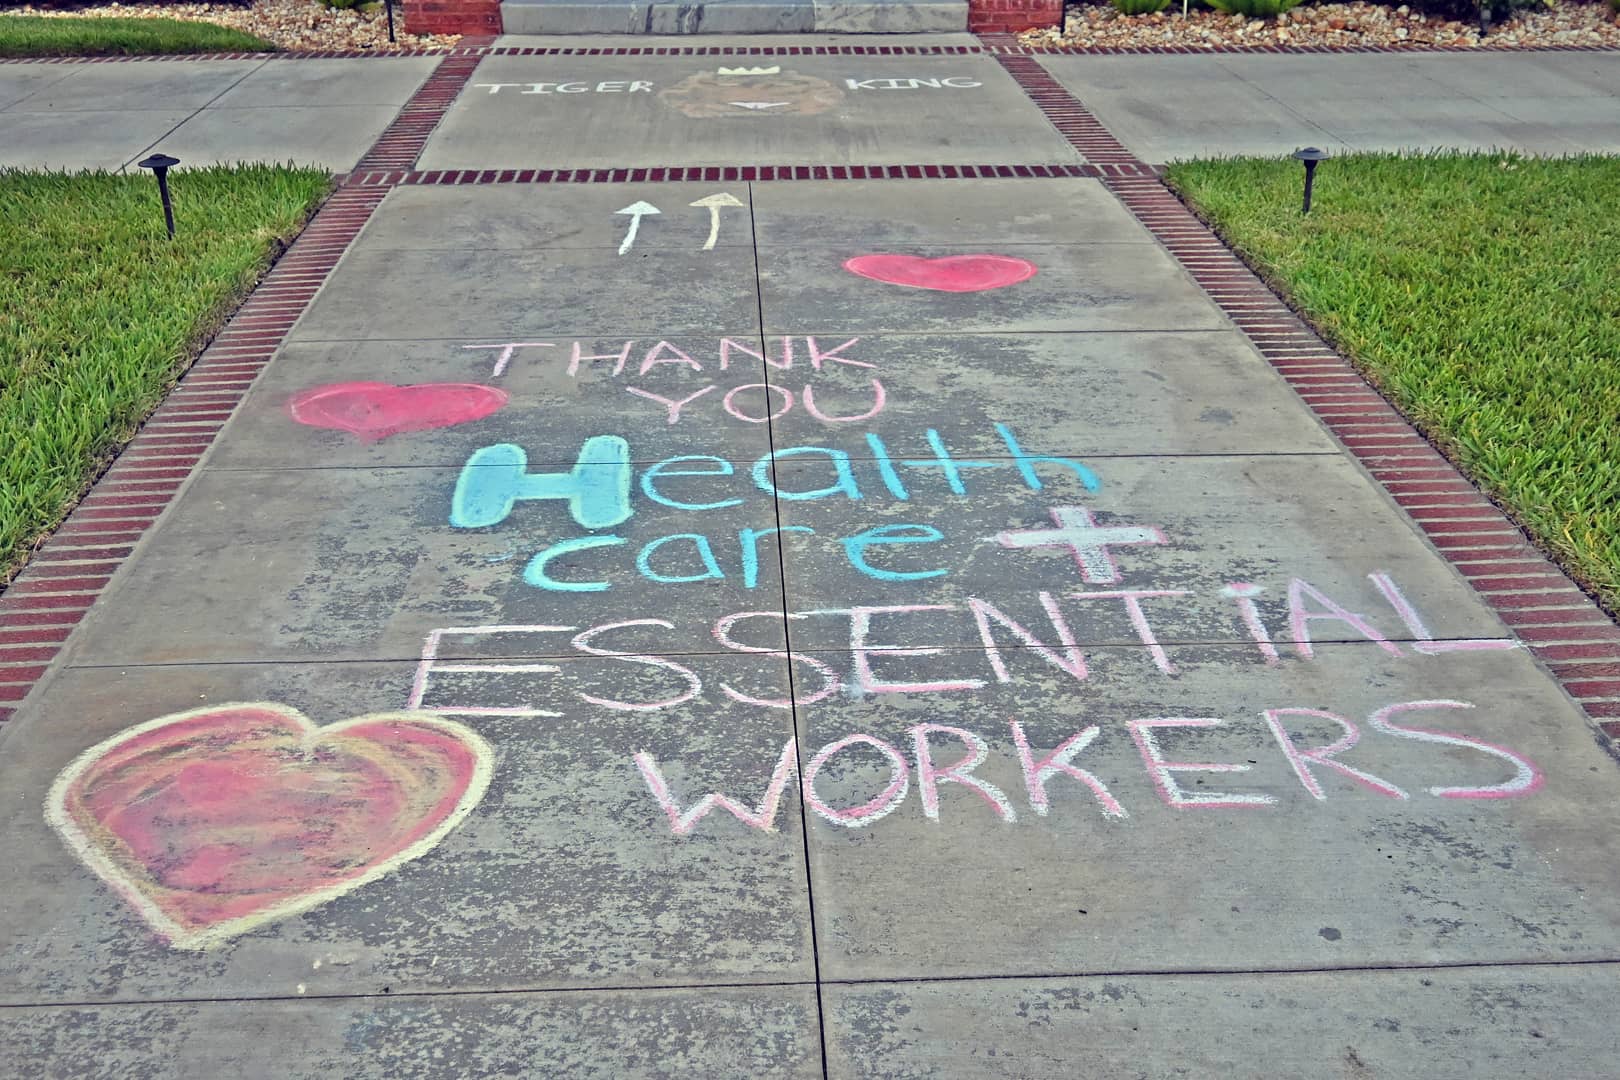 TIGER KING
THANK
YOU
Health
care +
ESSENTiAL
WORKERS